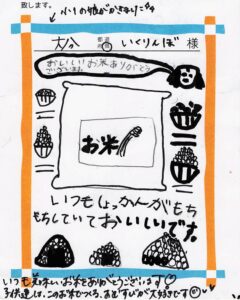 致します。
小1の娘がかきました
大分 都道府県 いくりんぼ 様
おいしいお米ありがとう
ございます。
お米
いつもしょっかんがもち
もちしていておいしいです。
いつも美味しいお米をありがとうございます
子供達は、このお米でつくる、おむすびが大好きです